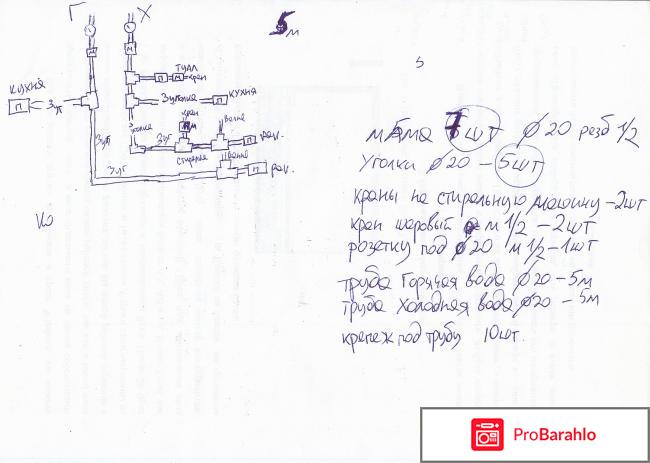 Г Х
5м
5
М М
ТУАЛ
П М кран
КУХНЯ
П
КУХНЯ
П
кран
М
ванна
П
стиралка
ванна
П
мама 7шт ⌀20 резб 1/2
Уголки ⌀20 – 5шт
краны на стиральную машину – 2шт
кран шаровый м 1/2 – 2шт
розетку под ⌀20 м 1/2 – 1шт
труба Горячая вода ⌀20 – 5м
труба Холодная вода ⌀20 – 5м
крепеж под трубу 10шт.
ProBarahlo